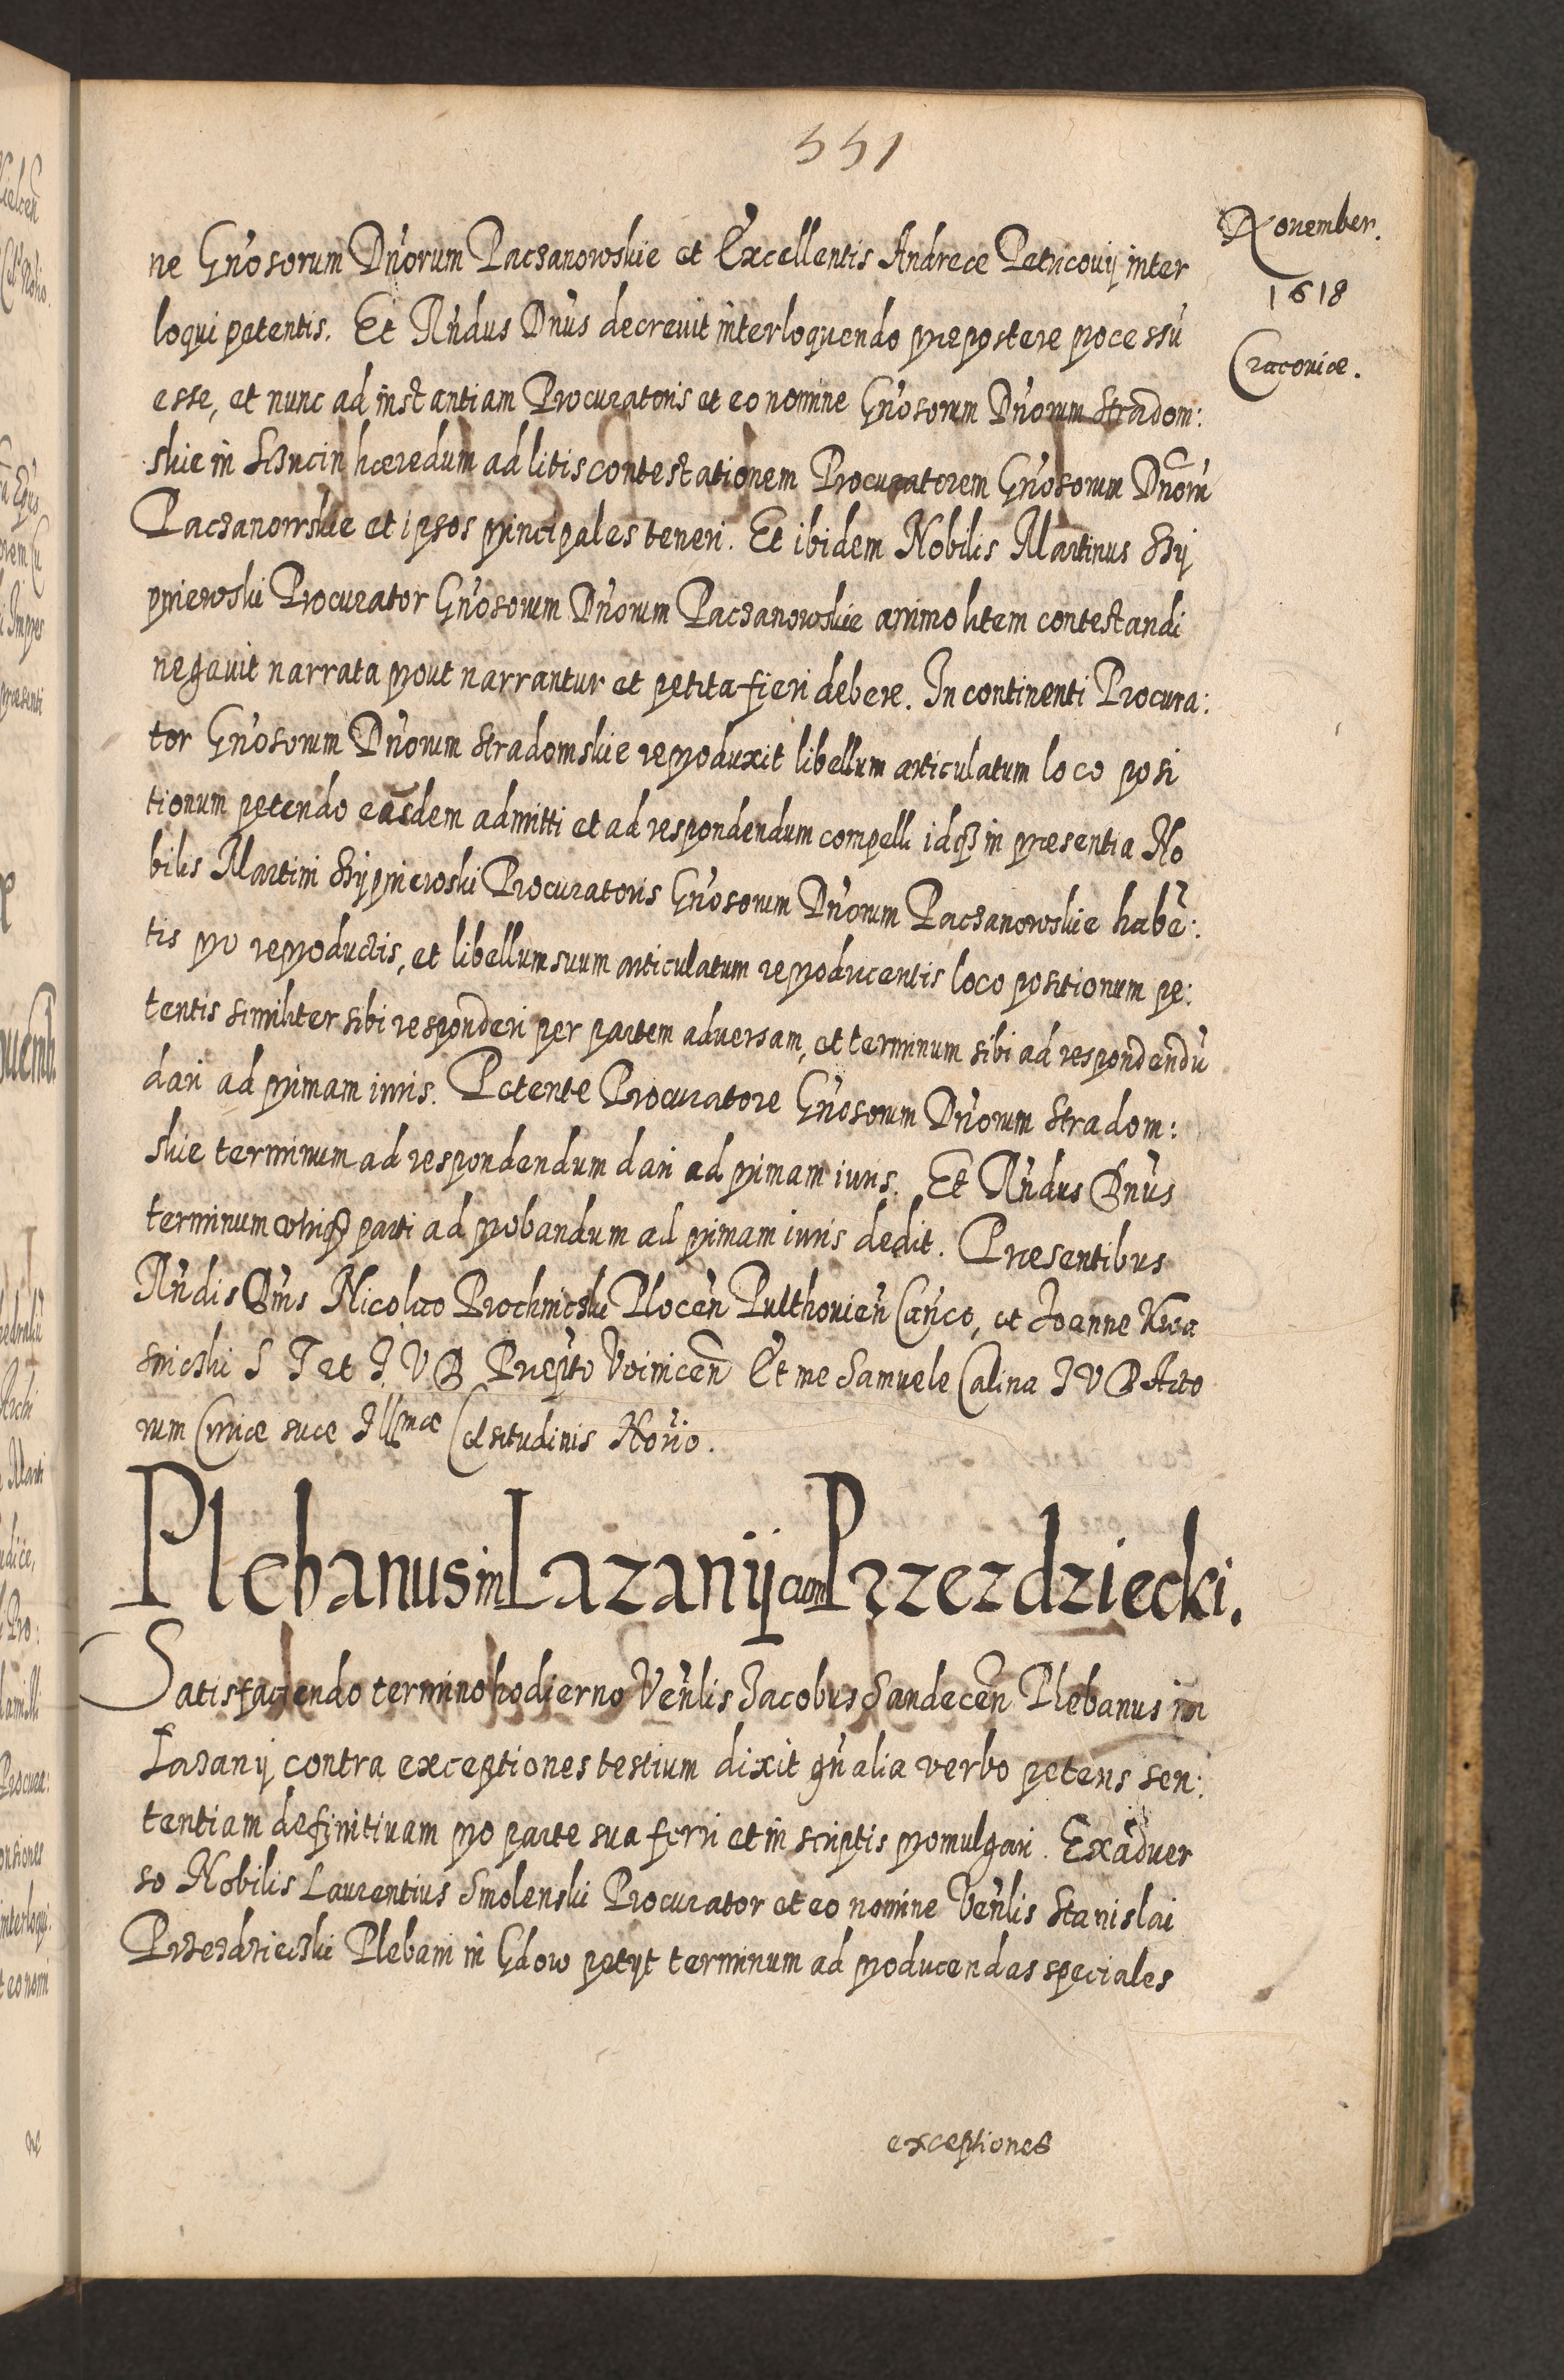 551
November.
1618
Cracoviæ.
ne Gn̄osorum Dn̄orum Paczanowskie et Excellentis Andreæ Petricovij inter
loqui petentis. Et Rn̄dus Dn̄us decrevit interloquendo præpostere pocessū
esse, et nunc ad instantiam Procuratoris et eo nomine Gn̄osorum Dn̄orum Stradom:
skie in hæredum ad litis contestationem Procuratorem Gn̄osorum Dnorū
Paczanowskie et ipsos principales teneri. Et ibidem Nobilis Martinus
Procurator Gn̄osorum Dn̄orum Paczanowskie animo litem contestandi
negavit narrata prout narrantur et petita fieri debere. In continenti Procura:
tor Gn̄osorum Dn̄orum Stradomskie reproduxit libellum articulatum loco posi
tionum petendo easdem admitti et ad respondendum compelli idq in præsentia No
bilis Martini Procuratoris Gn̄osorum Dn̄orum Paczanowskie habē:
tis pro reproductis, et libellum suum articulatum reproducentis loco positionum pe:
tentis similiter sibi responderi per partem adversam, et terminum sibi ad respondendū
dari ad primam iuris. Petente Procuratore Gn̄osorum Dn̄orum Stradom:
skie terminum ad respondendum dari ad primam iuris. Et Rn̄dus Dn̄us
terminum utriq parti ad probandum ad primam iuris dedit. Præsentibus
Rn̄dis Dn̄is Nicolao Prochniczki Plocen̄ Pulthovien̄ Can̄co, et Joanne Kwa
sniczki S T et J V D Præpto Voinicen̄ Et me Samuele Calina J V D Acto
rum Curiæ suæ Jllmæ Celsitudinis Nōrio.
Plebanus in Lazanij cum Przezdziecki.
Satisfaciendo termino hodierno Ven̄lis Jacobus Sandecen̄ Plebanus in
Lazanij contra exceptiones testium dixit gn̄alia verbo petens sen:
tentiam definitivam pro parte sua ferri et in scriptis promulgari. Exadver
so Nobilis Laurentius Smolenski Procurator et eo nomine Ven̄lis Stanislai
Przezdzieczki Plebani in Gdow petijt terminum ad producendas speciales
exceptiones